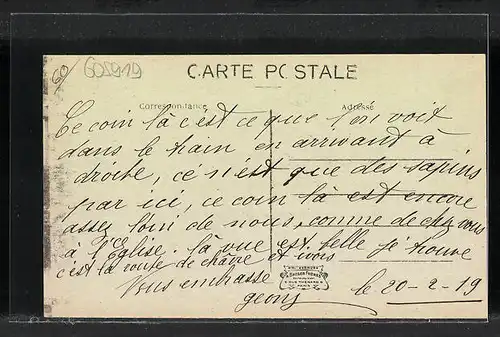 60
605919
CARTE POSTALE
Correspondance
Adressé
Ce coin là c'est ce que l'on voit
dans le train en arrivant à
droite, ce n'est que des sapins
par ici, ce coin là est encore
assez loin de nous, comme de chez vous
à l'Eglise. là vue est belle je trouve
c'est la route de et
Vous embrasse
le 20-2-19